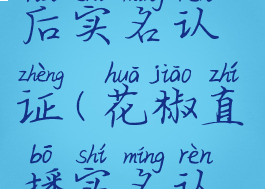 后实名认
zhèng huā jiāo zhí
证(花椒直
bō shí míng rèn
播实名认